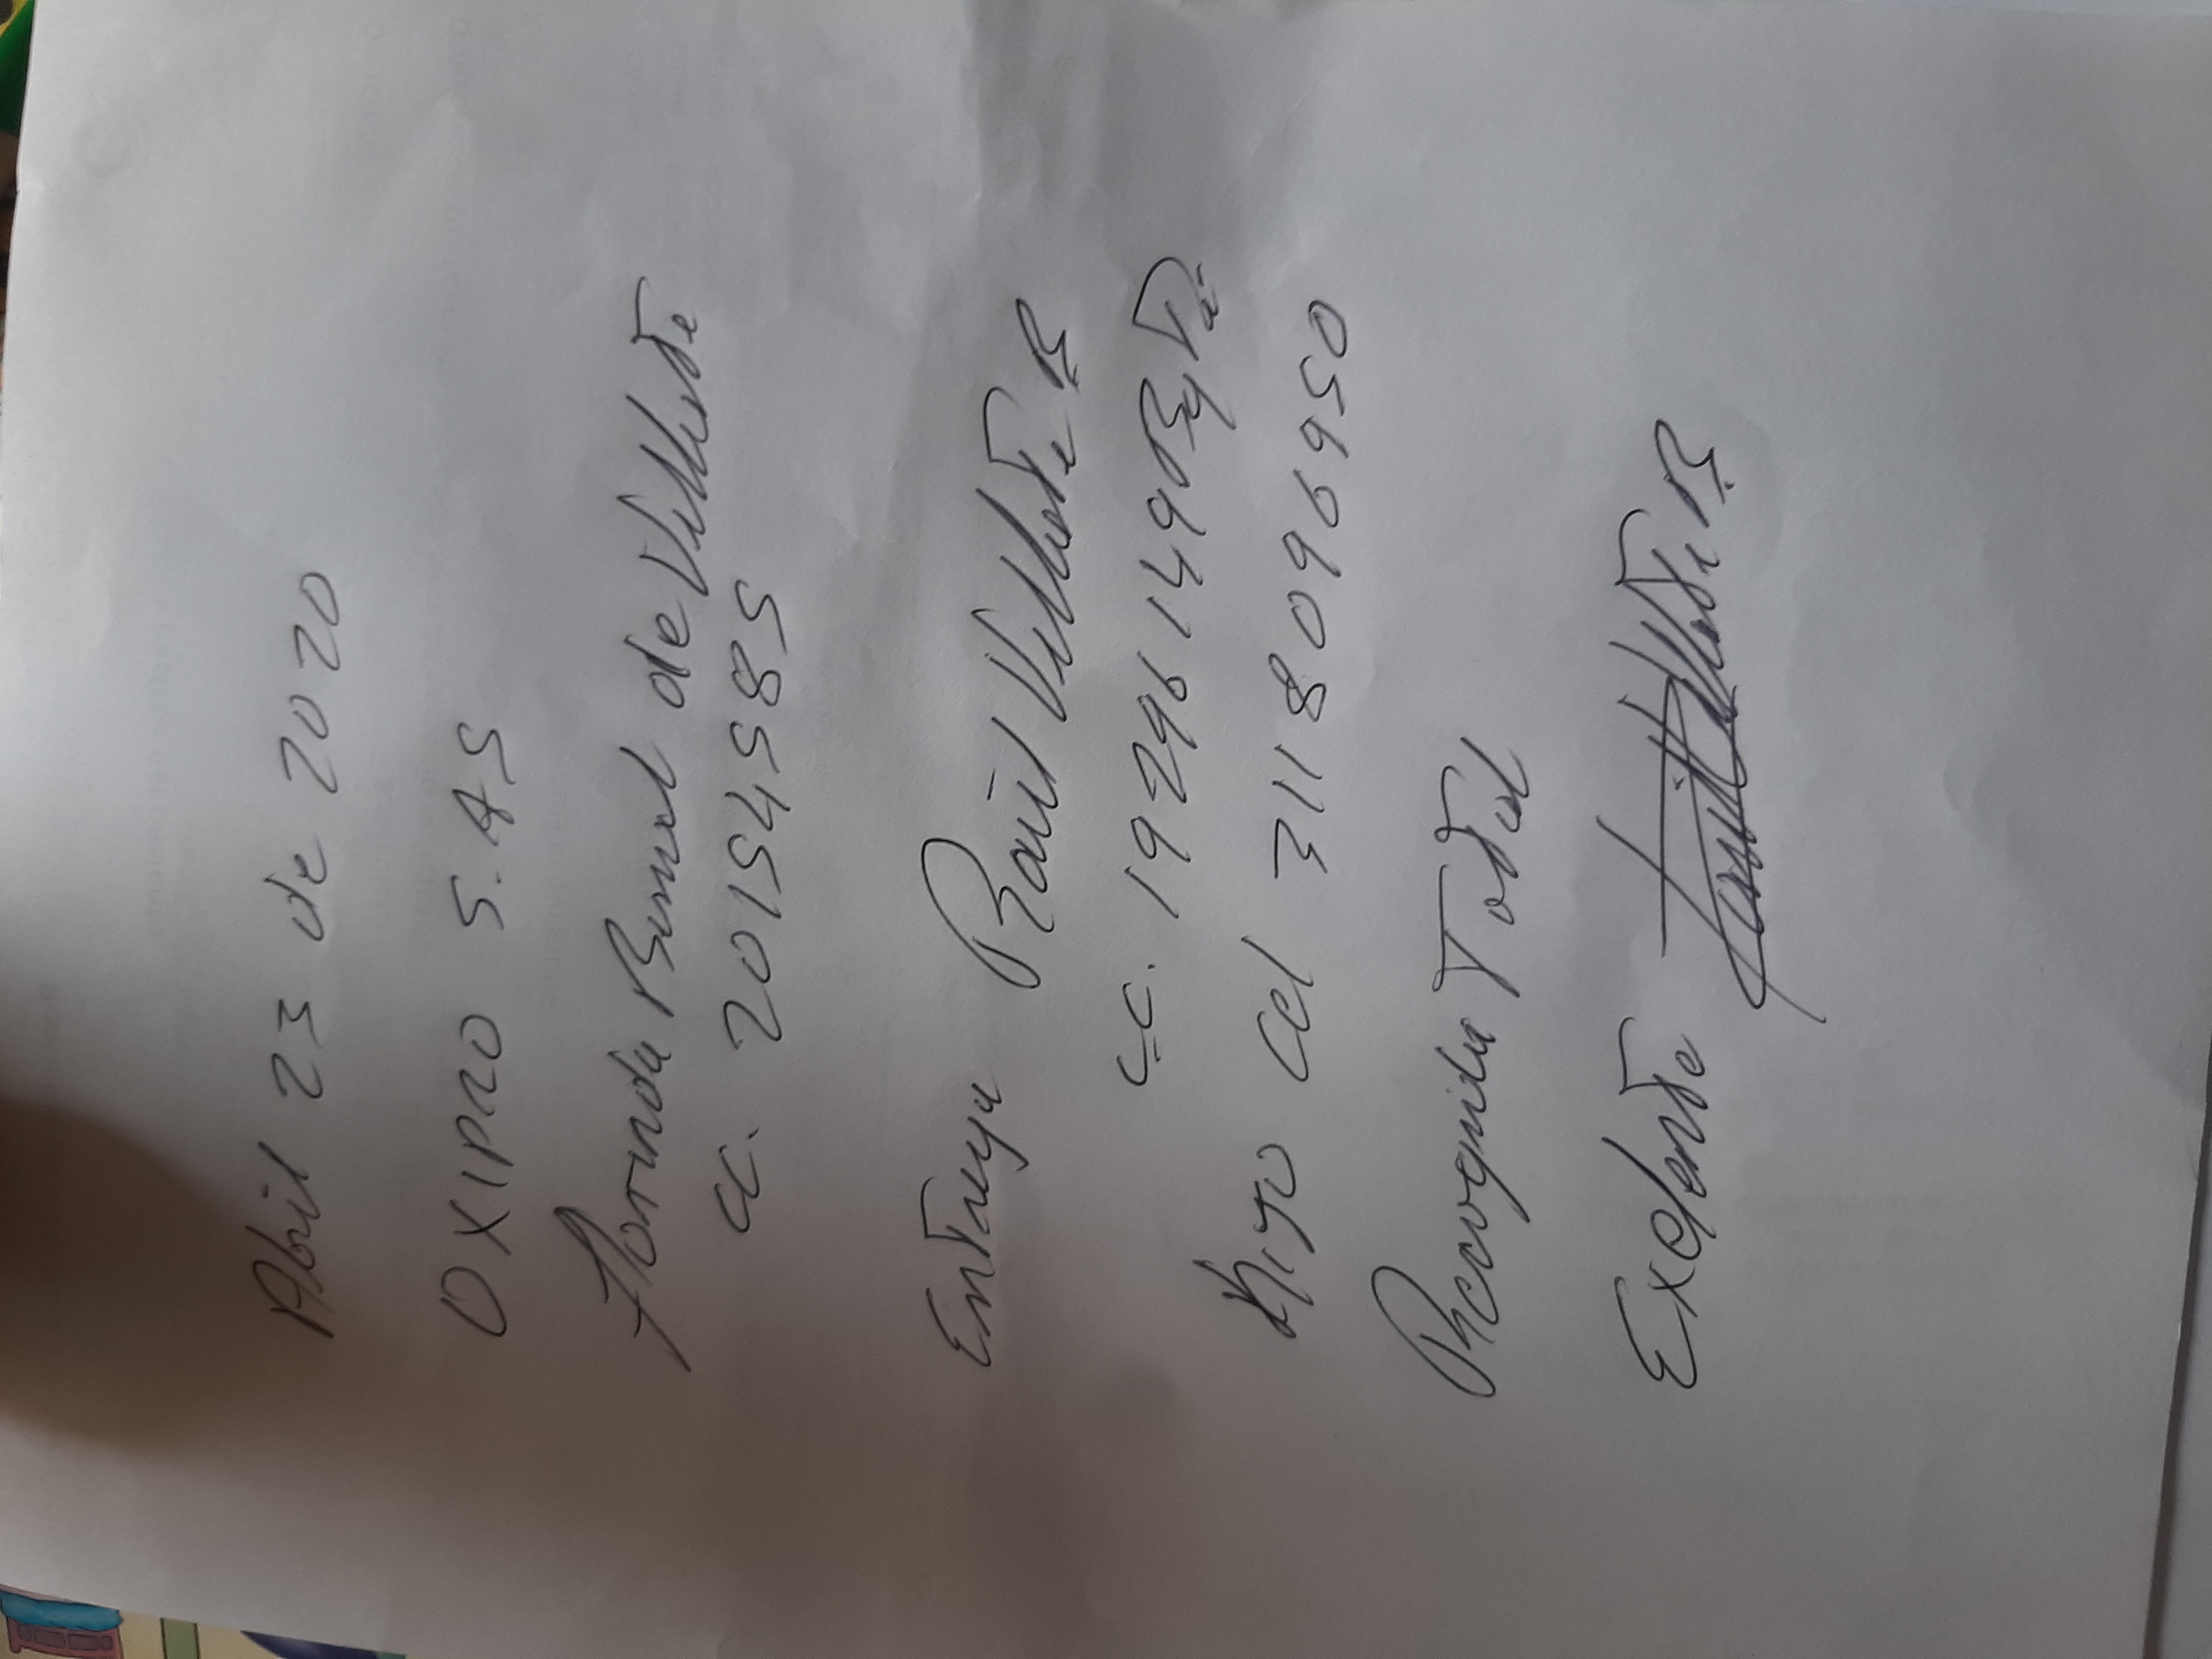 Abril 23 de 2020
OXIPRO S.AS
Florinda Bernal de Villute
CC. 20154585
Entrega Raúl Villute B
C.C. 19296149 Bgta
Hijo Cel 3118096950
Recogida Total
Exelente